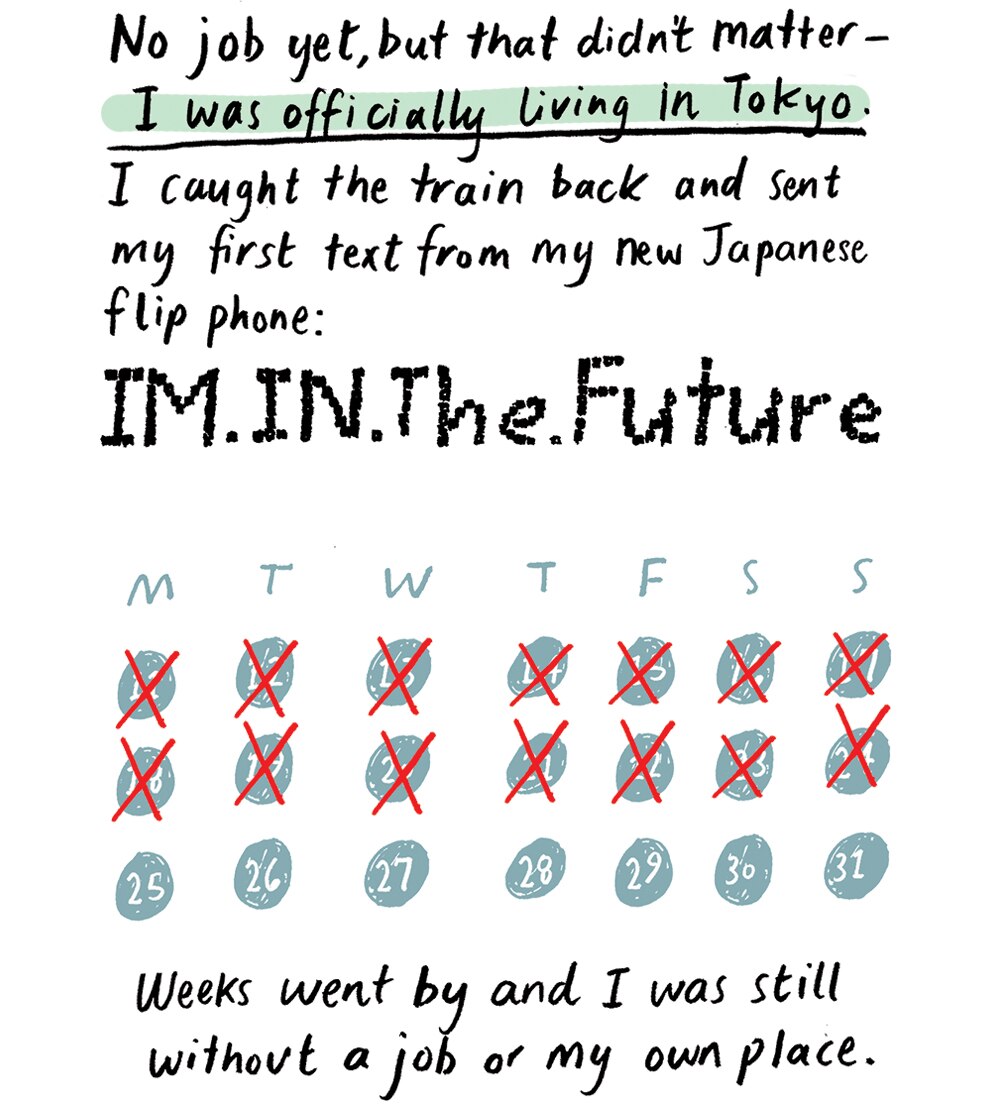 No job yet, but that didn't matter –
I was officially living in Tokyo.
I caught the train back and sent
my first text from my new Japanese
flip phone:
IM.IN.The.Future
M T W T F S S
11 12 13 14 15 16 17
18 19 20 21 22 23 24
25 26 27 28 29 30 31
Weeks went by and I was still
without a job or my own place.